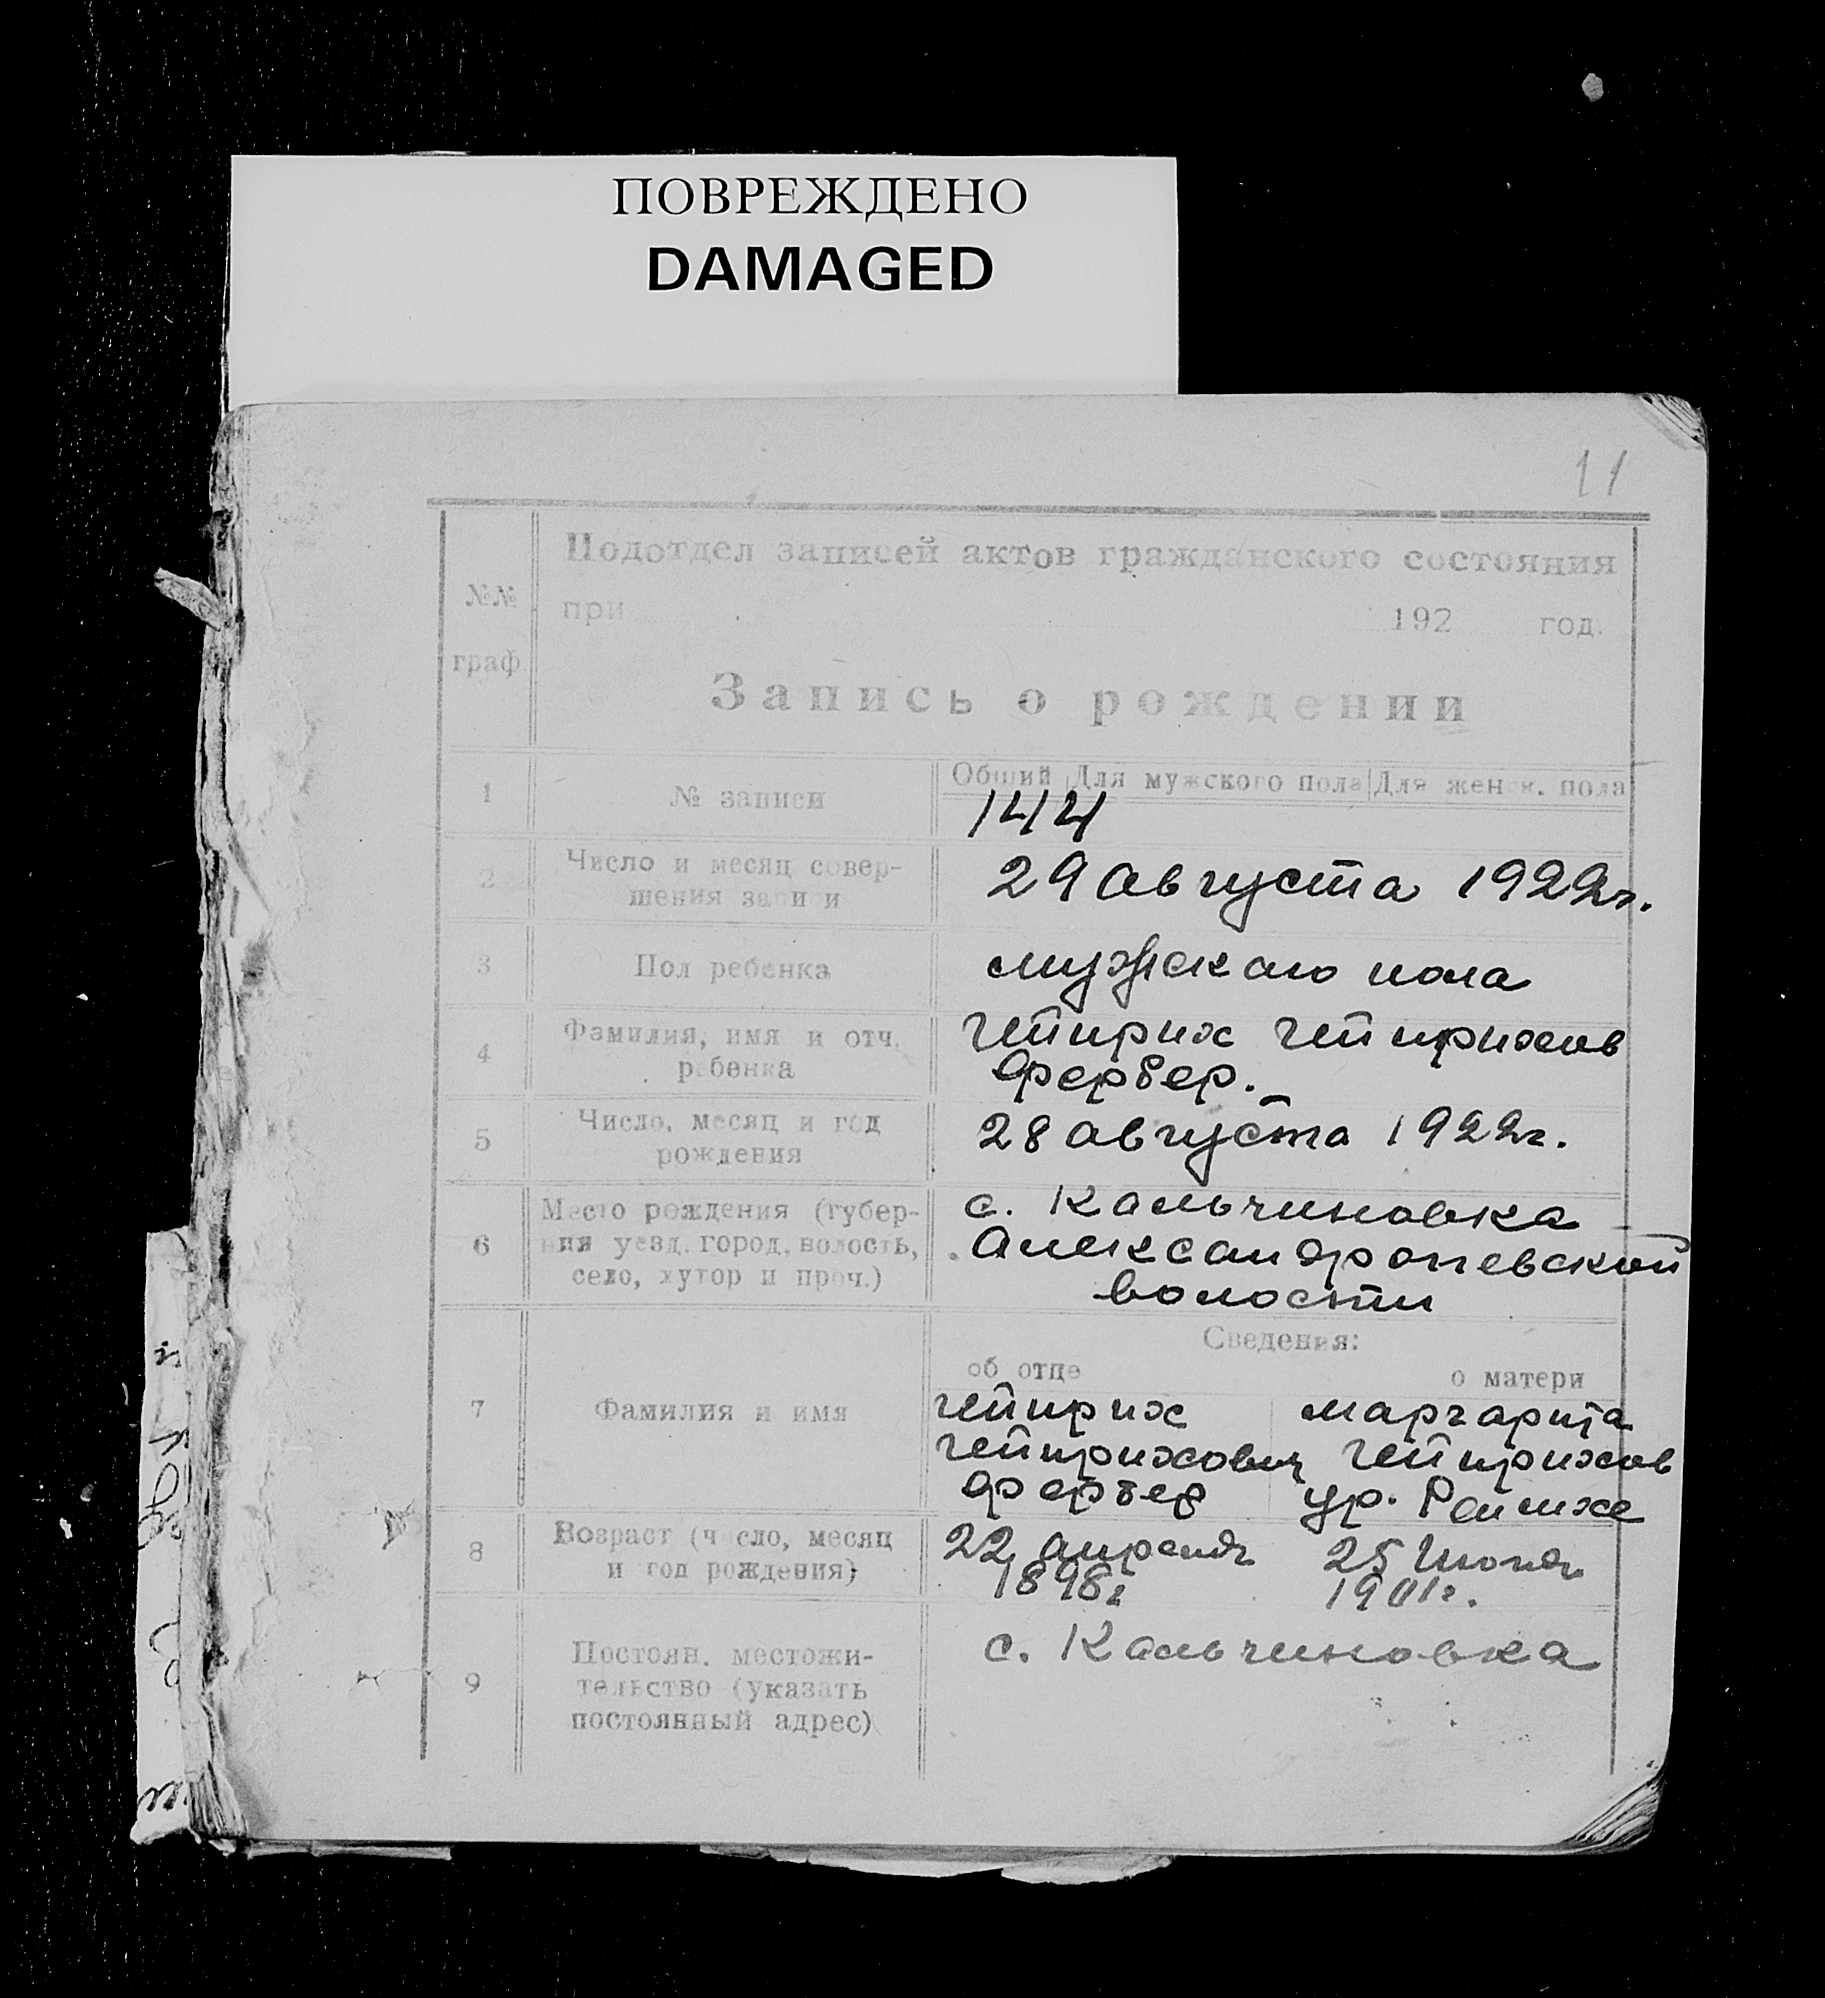 ПОВРЕЖДЕНО
DAMAGED
11
№№
граф
Подотдел записей актов гражданского состояния
при 192 год.
Запись о рождении
1
№ записи
Общий Для мужского пола Для женск. пола
144
2
Число и месяц совер-
шения записи
29 августа 1922г.
3
Пол ребенка
мужскаго пола
4
Фамилия, имя и отч.
ребенка
Гейнрих Гейнрихов
Фербер.
5
Число, месяц и год
рождения
28 августа 1922г.
6
Место рождения (губер-
ния уезд, город, волость,
село, хутор и проч.)
с. Кальчиновка
Александроневской
волости
Сведения:
об отце
о матери
7
Фамилия и имя
Гейнрих
Гейнрихович
Фербер
Маргарита
Гейнрихов
ур.
8
Возраст (число, месяц
и год рождения)
22 апреля
1898г
25 Июня
1901г.
9
Постоян. местожи-
тельство (указать
постоянный адрес)
с. Кальчиновка